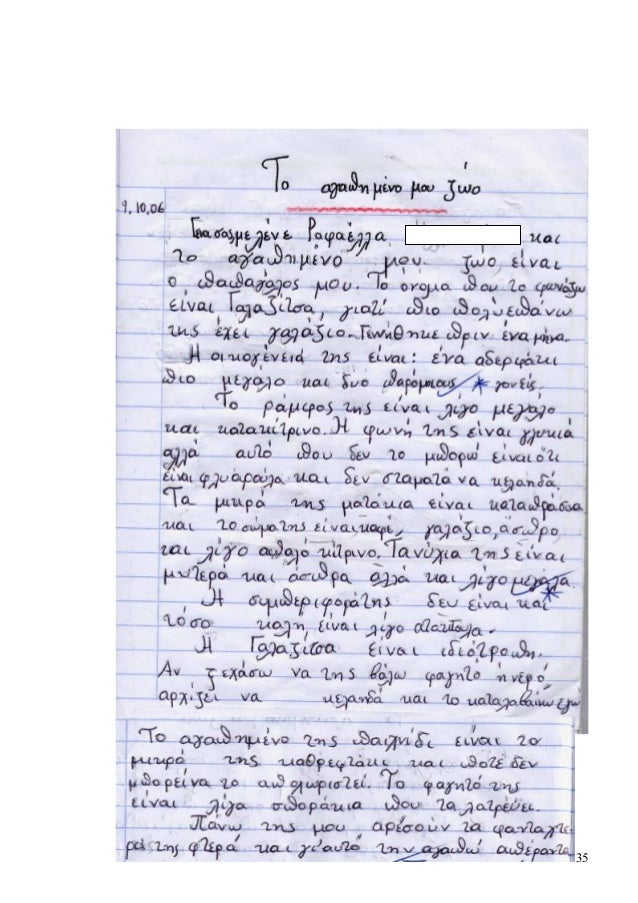 Το αγαπημένο μου ζώο
9.10.06
Γεια σας με λένε Ραφαέλλα και
το αγαπημένο μου ζώο είναι
ο παπαγάλος μου. Το όνομα που το φωνάζω
είναι Γαλαζίτσα, γιατί πιο πολύ επάνω
της έχει γαλάζιο. Γεννήθηκε πριν ένα μήνα.
Η οικογένειά της είναι: ένα αδερφάκι
πιο μεγάλο και δυο παρόμοιους * γονείς.
Το ράμφος της είναι λίγο μεγάλο
και κατακίτρινο. Η φωνή της είναι γλυκιά
αλλά αυτό που δεν το μπορώ είναι ότι
είναι φλυαρούλα και δεν σταματά να κελαηδά.
Τα μικρά της ματάκια είναι καταπράσινα
και το σώμα της είναι καφέ, γαλάζιο, άσπρο
και λίγο απαλό κίτρινο. Τα νύχια της είναι
μυτερά και άσπρα αλλά και λίγο μεγάλα.
*
Η συμπεριφορά της δεν είναι και
τόσο καλή, είναι λίγο
Η Γαλαζίτσα είναι ιδιότροπη.
Αν ξεχάσω να της βάλω φαγητό ή νερό,
αρχίζει να κελαηδά και το καταλαβαίνω εγώ
Το αγαπημένο της παιχνίδι είναι το
μικρό της καθρεφτάκι και ποτέ δεν
μπορεί να το απ
είναι λίγα σποράκια που τα λατρεύει.
Πάνω της μου αρέσουν τα φανταχτε
ρά της φτερά και γι'αυτό την αγαπώ απέραντα
35